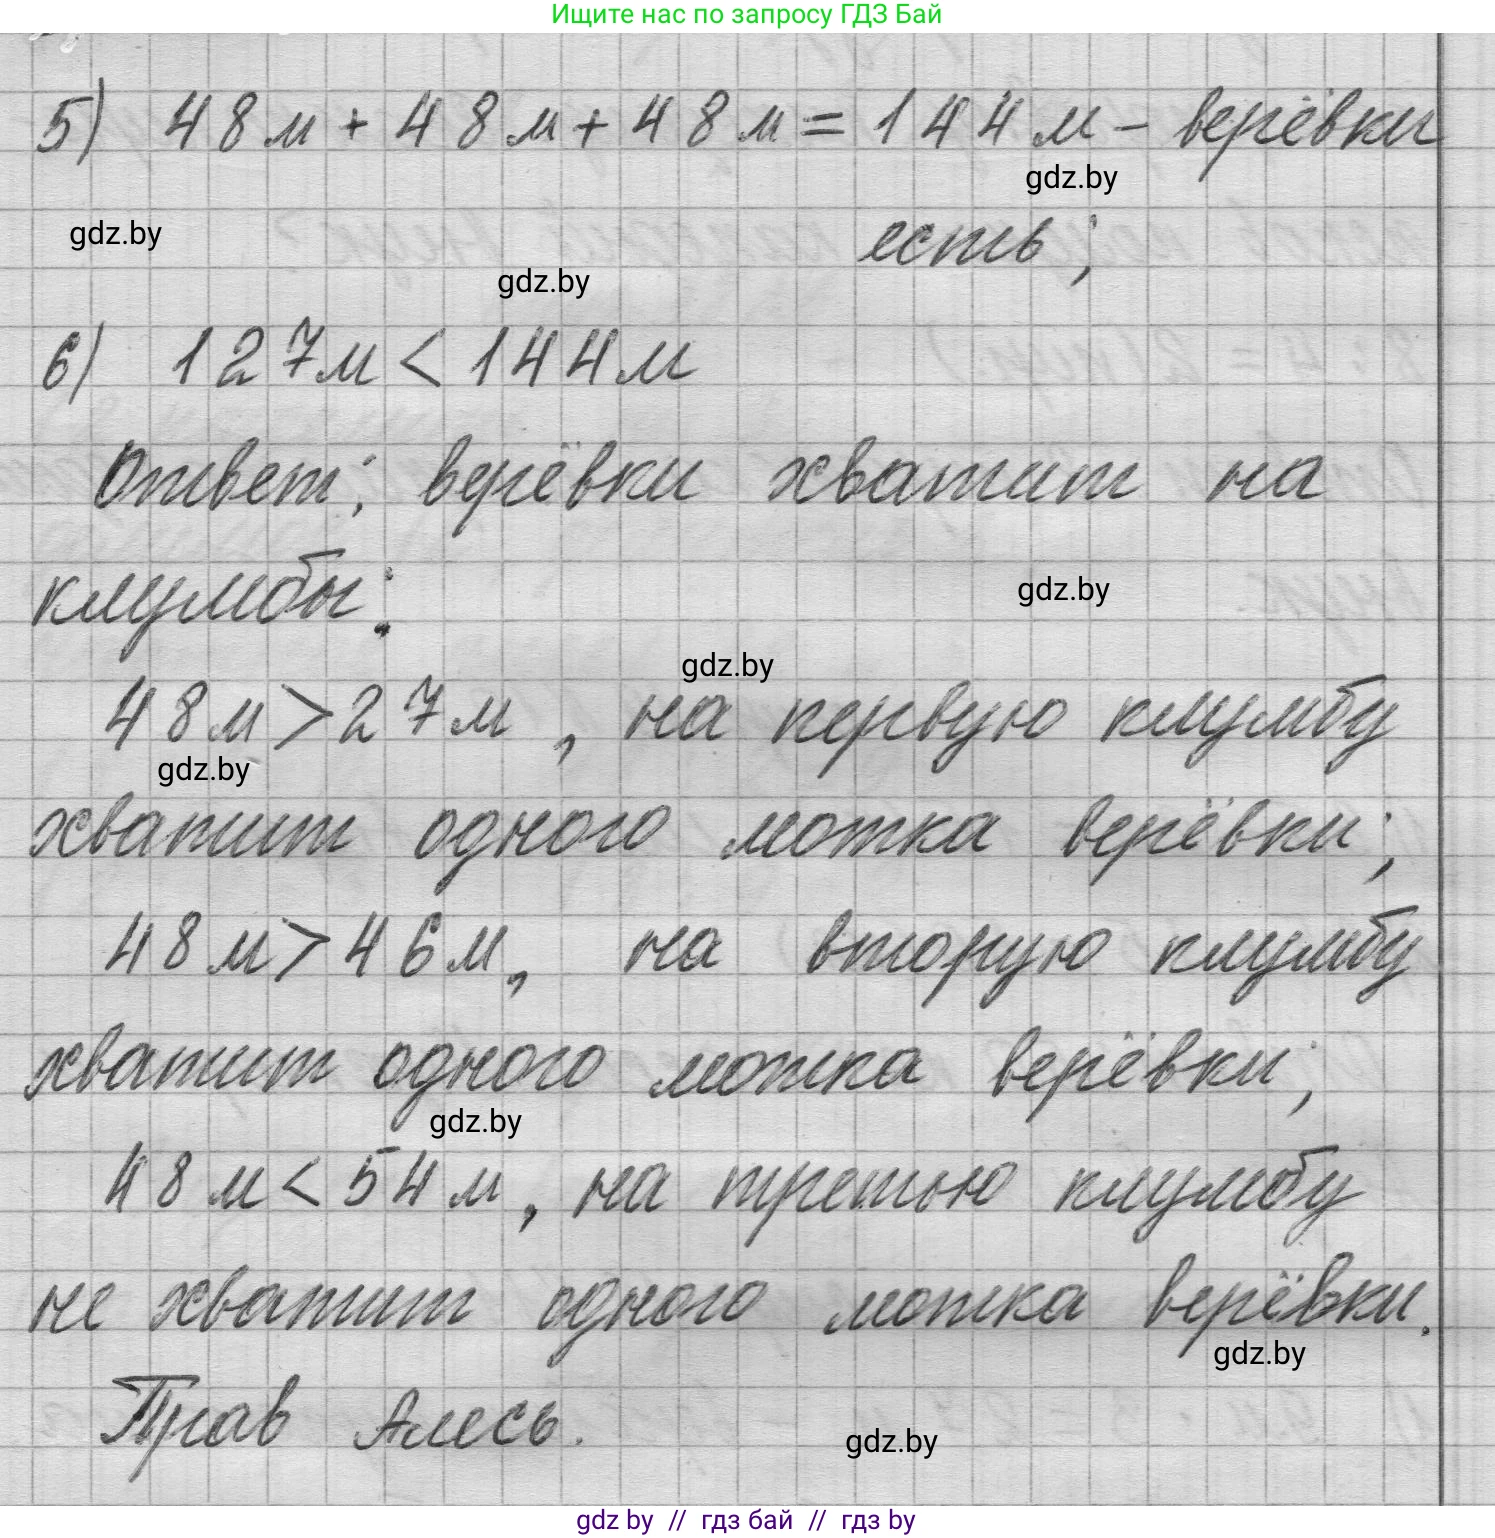 Ищите нас по запросу ГДЗ Бай
5) 48м + 48м + 48м = 144м – верёвки
gdz.by
есть;
gdz.by
gdz.by
6) 127м < 144м
Ответ: верёвки хватит на
клумбы:
gdz.by
gdz.by
48м > 27м, на первую клумбу
gdz.by
хватит одного мотка верёвки;
48м > 46м, на вторую клумбу
хватит одного мотка верёвки;
gdz.by
48м < 54м, на третью клумбу
не хватит одного мотка верёвки.
gdz.by
Прав Алесь.
gdz.by
gdz by // гдз бай // гдз by